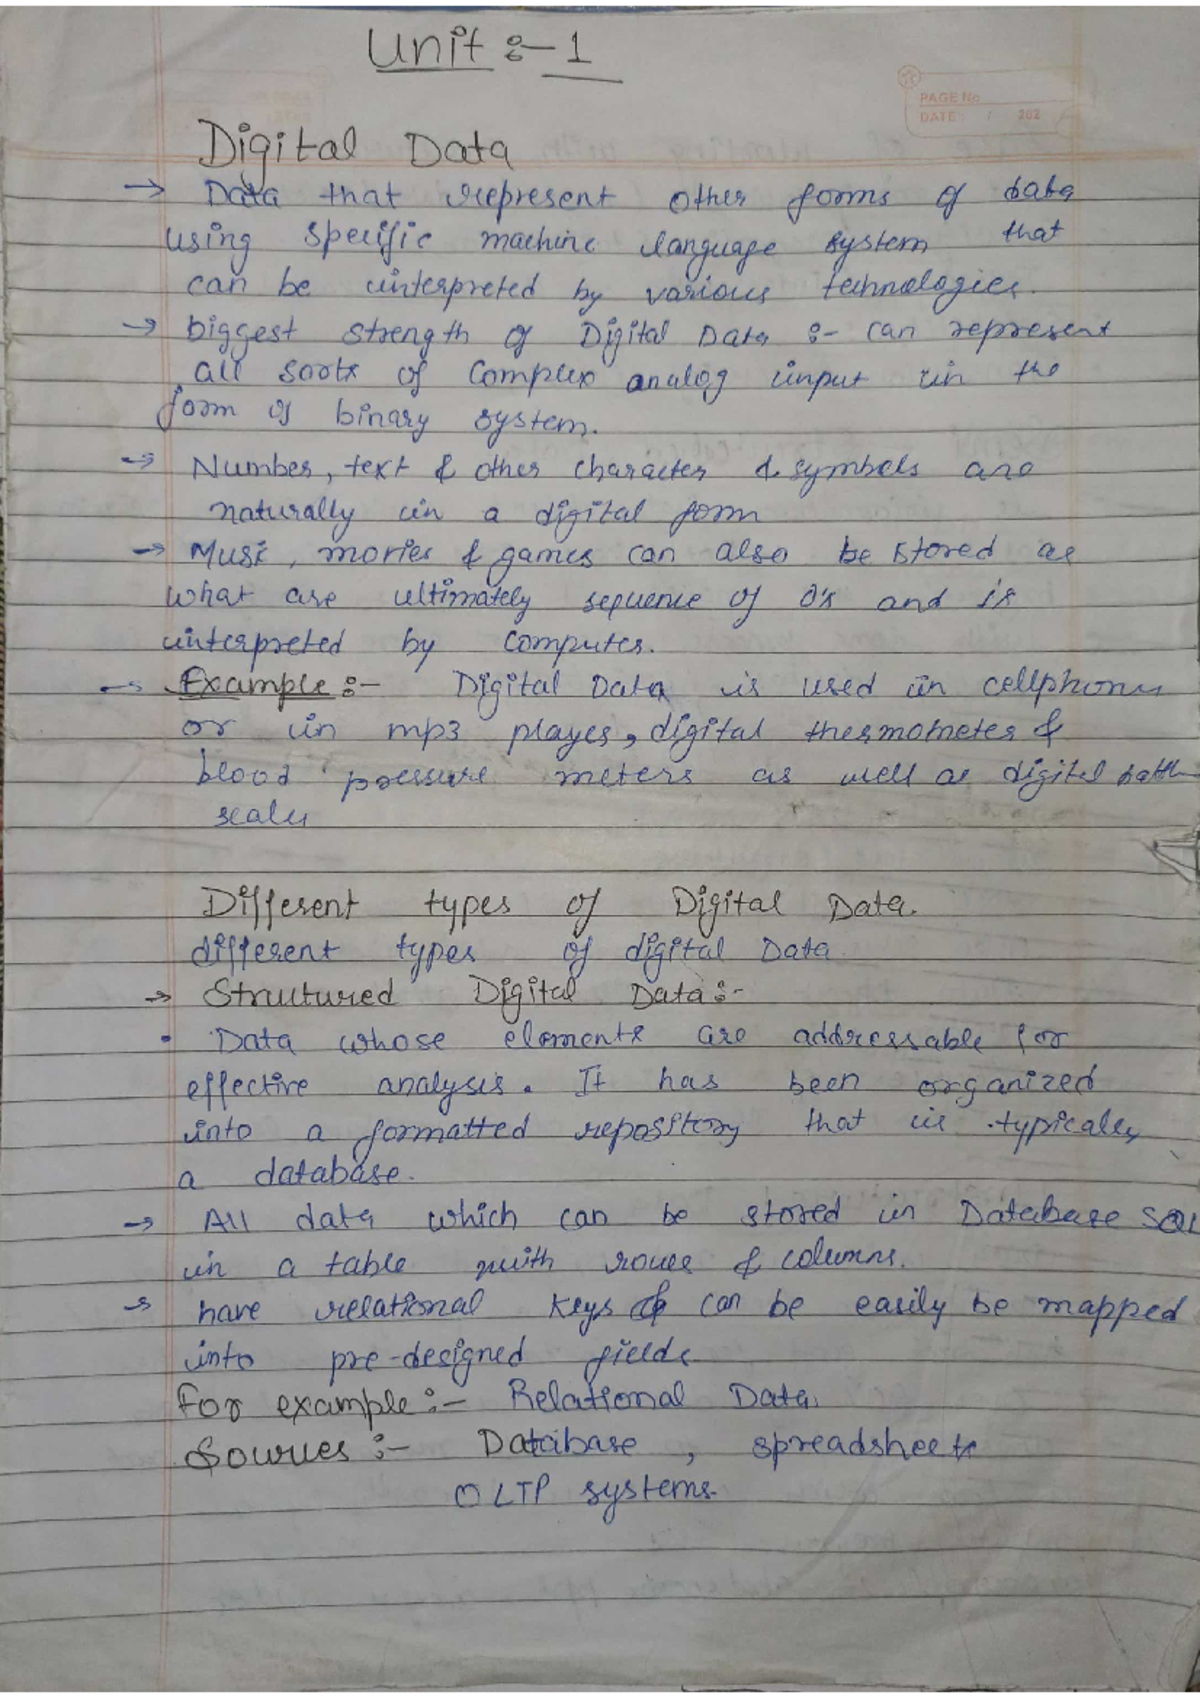 Unit :- 1
PAGE No
DATE / 202
Digital Data
→ Data that represent other forms of data
using specific machine language system that
can be interpreted by various technologies.
→ biggest strength of Digital Data :- can represent
all sorts of complex analog input in the
form of binary system.
→ Number, text & other character & symbols are
naturally in a digital form
→ Music, movies & games can also be stored as
what are ultimately sequence of 0's and 1s
interpreted by computer.
→ Example :- Digital Data is used in cellphones
or in mp3 player, digital thermometer &
blood pressure meters as well as digital bath
scales
Different types of Digital Data.
different types of digital Data
→ Structured Digital Data :-
• Data whose elements are addressable for
effective analysis. It has been organized
into a formatted repository that is typically
a database.
→ All data which can be stored in Database SQL
in a table with rows & columns.
→ have relational keys & can be easily be mapped
into pre-designed fields
For example :- Relational Data.
Sources :- Database, spreadsheets
OLTP systems.